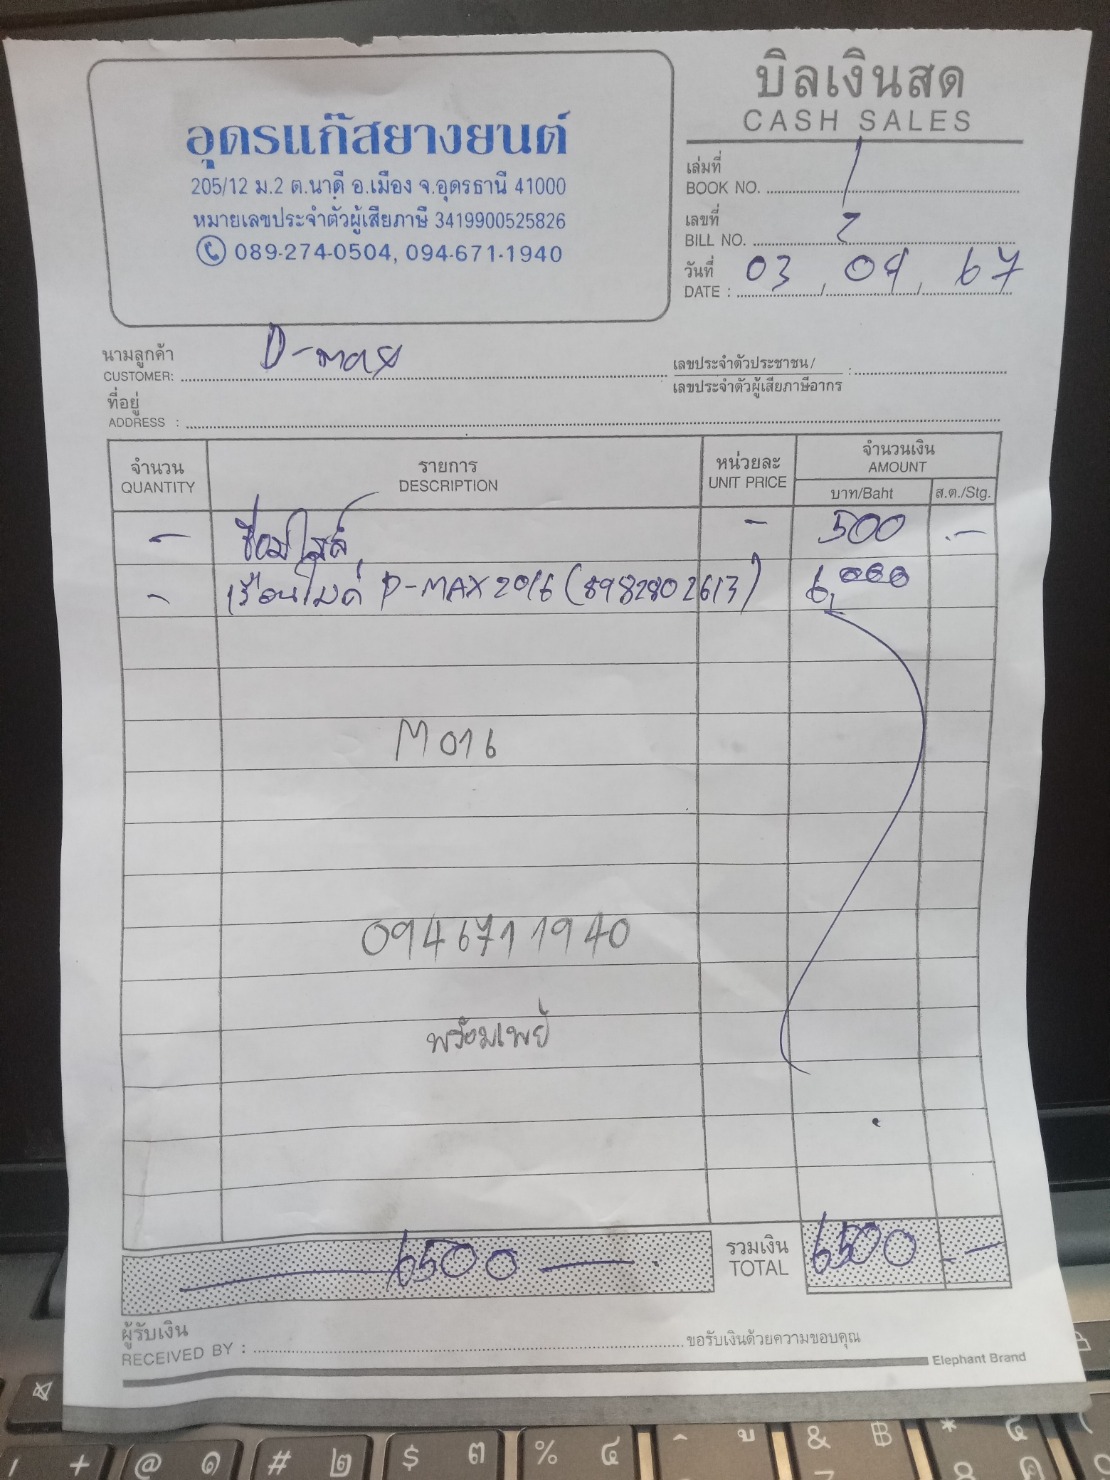 บิลเงินสด
CASH SALES
อุดรแก๊สยางยนต์
205/12 ม.2 ต.นาดี อ.เมือง จ.อุดรธานี 41000
หมายเลขประจำตัวผู้เสียภาษี 3419900525826
089-274-0504, 094-671-1940
เล่มที่
BOOK NO. 1
เลขที่
BILL NO. 2
วันที่
DATE : 03 / 04 / 67
นามลูกค้า
CUSTOMER: D-max
เลขประจำตัวประชาชน/ :
เลขประจำตัวผู้เสียภาษีอากร
ที่อยู่
ADDRESS :
จำนวน รายการ หน่วยละ จำนวนเงิน
QUANTITY DESCRIPTION UNIT PRICE AMOUNT
บาท/Baht ส.ต./Stg.
- ซ่อมไมล์ - 500 .-
- เรือนไมล์ D-MAX 2016 (8982802613) 6,000
M016
094 671 1940
พร้อมเพย์
6500 รวมเงิน 6500 .-
TOTAL
ผู้รับเงิน
RECEIVED BY : ขอรับเงินด้วยความขอบคุณ
Elephant Brand
+ @ ๑ # ๒ $ ๓ % ๔ ู & ฿ * ๕ (